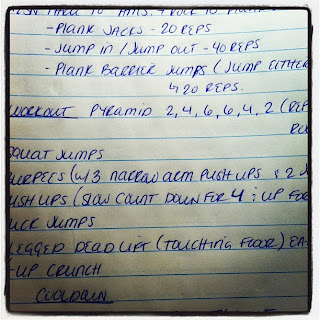 - PLANK JACKS - 20 REPS
- JUMP IN / JUMP OUT - 40 REPS
- PLANK BARRIER JUMPS ( JUMP EITHER
↳ 20 REPS.
WORKOUT PYRAMID 2, 4, 6, 6, 4, 2 (REP
SQUAT JUMPS
BURPEES (w/ 3 NARROW ARM PUSH UPS & 2
PUSH UPS (SLOW COUNT DOWN FOR 4 ; UP FOR
TUCK JUMPS
LEGGED DEADLIFT (TOUCHING FLOOR) EA
-UP CRUNCH
COOLDOWN